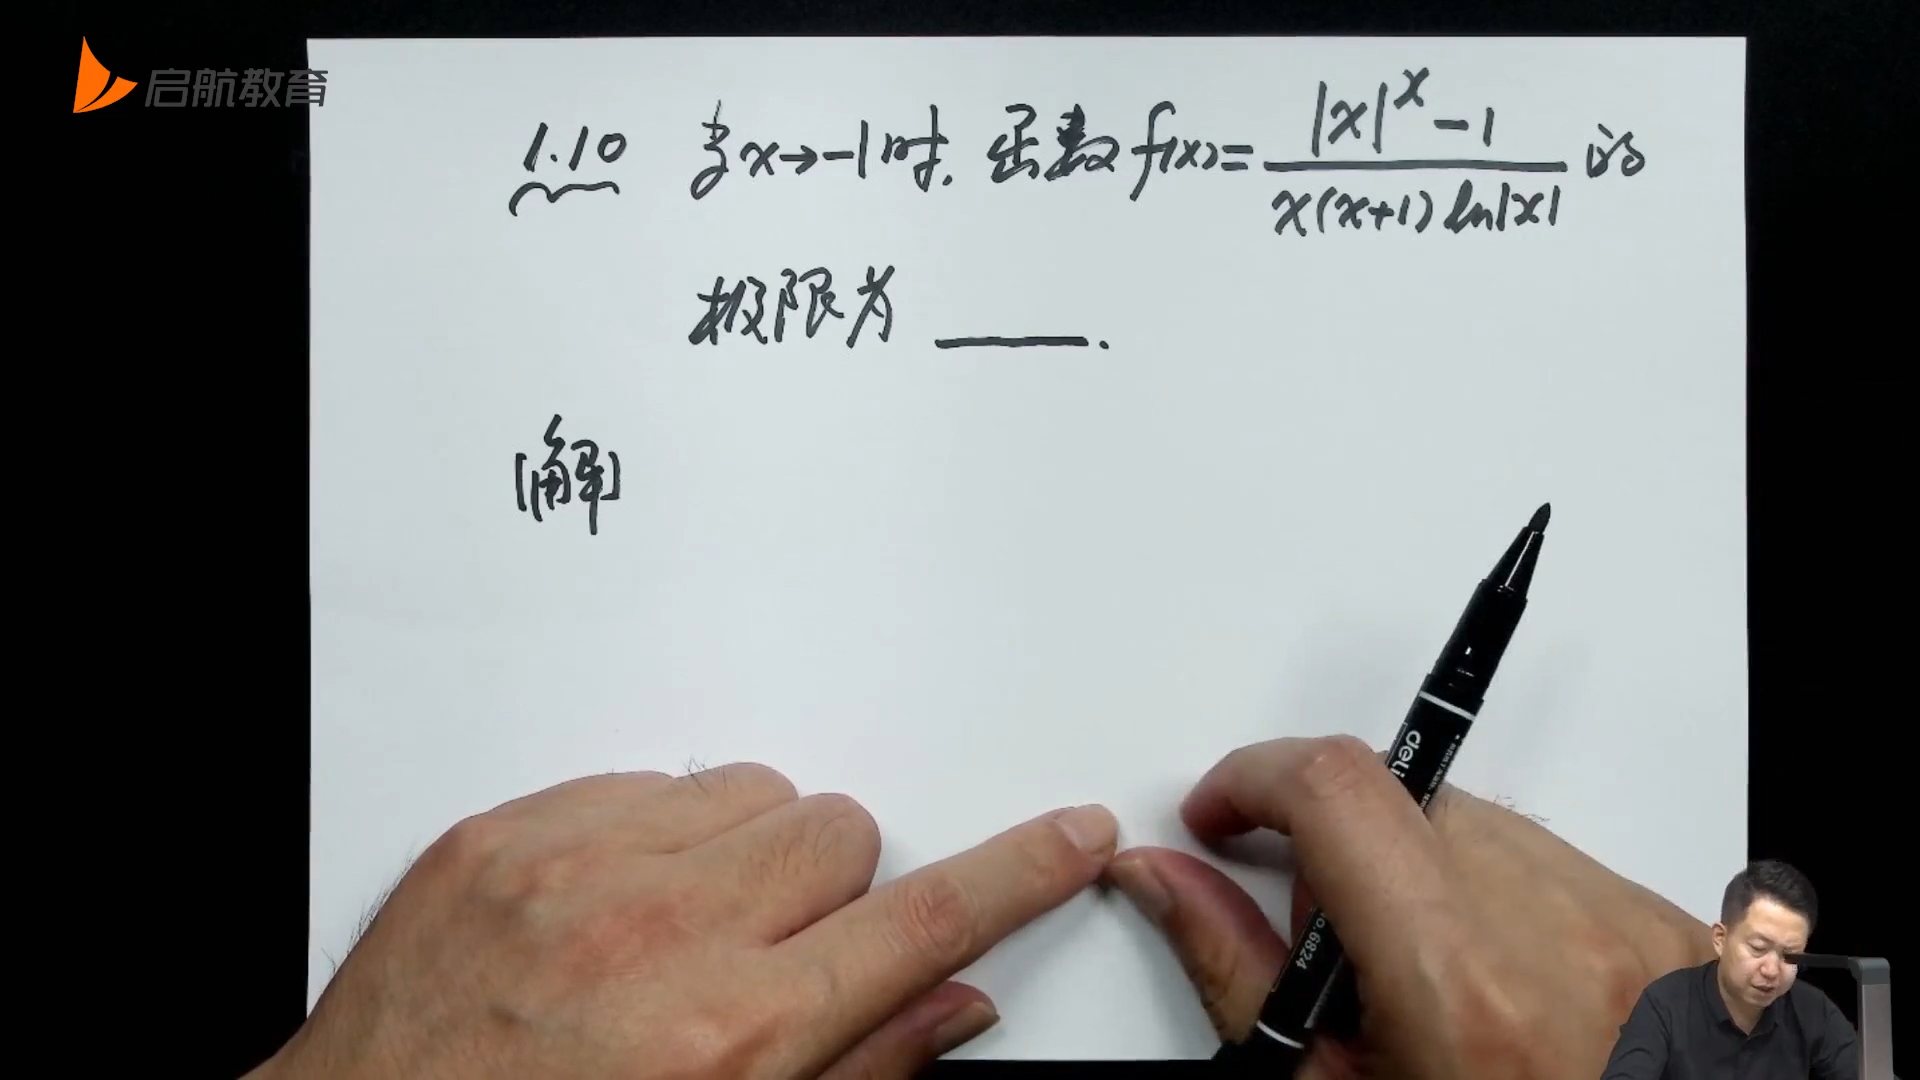 启航教育
1.10 当x→-1时, 函数f(x)=\frac{|x|^x-1}{x(x+1)ln|x|}的
极限为____.
[解]
deli
No.6824